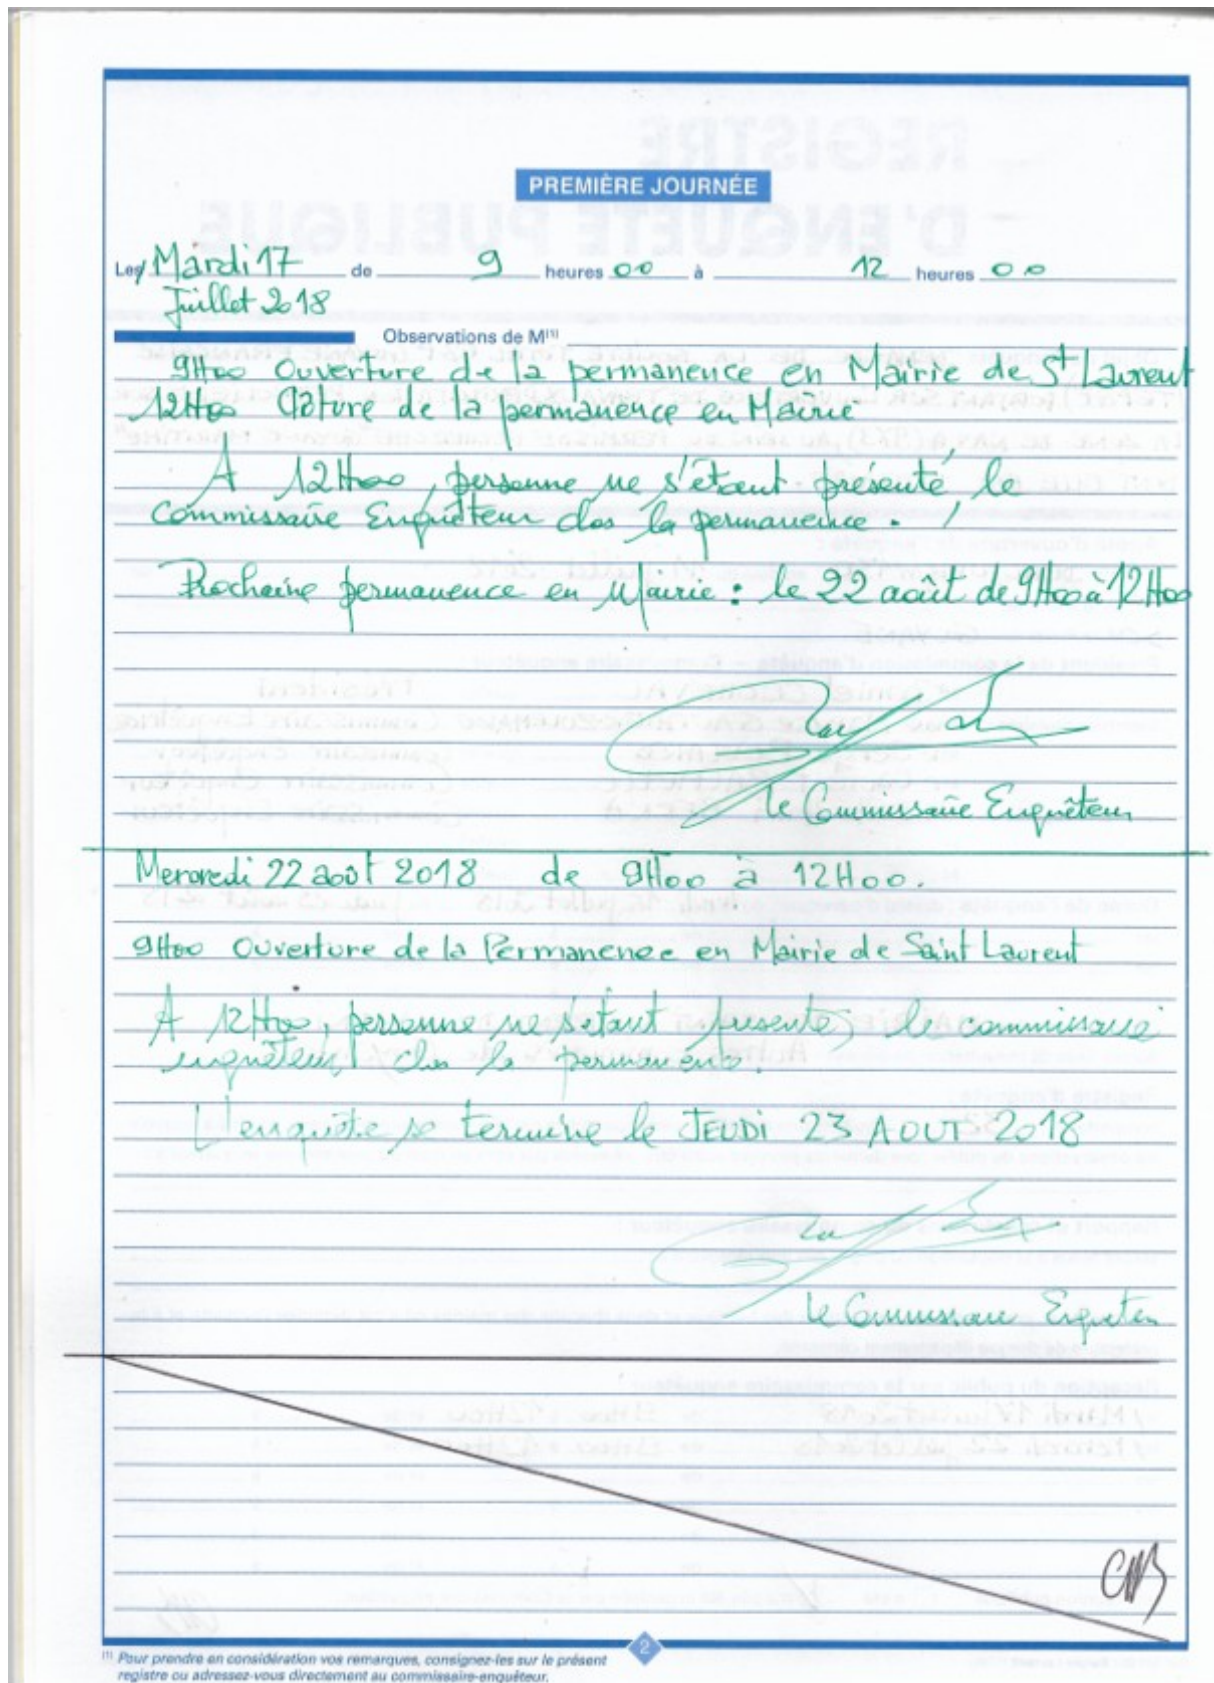 PREMIÈRE JOURNÉE
Les Mardi 17 de 9 heures 00 à 12 heures 00
Juillet 2018
Observations de M(1)
9H00 Ouverture de la permanence en Mairie de St Laurent
12H00 Clôture de la permanence en Mairie
A 12H00, personne ne s'étant présenté, le
Commissaire Enquêteur clos la permanence.
Prochaine permanence en Mairie : le 22 août de 9H00 à 12H00
Le Commissaire Enquêteur
Mercredi 22 août 2018 de 9H00 à 12H00.
9H00 Ouverture de la Permanence en Mairie de Saint Laurent
A 12H00, personne ne s'étant présenté, le commissaire
enquêteur clos la permanence.
L'enquête se termine le JEUDI 23 AOUT 2018
Le Commissaire Enquêteur
CMB
2
(1) Pour prendre en considération vos remarques, consignez-les sur le présent
registre ou adressez-vous directement au commissaire-enquêteur.